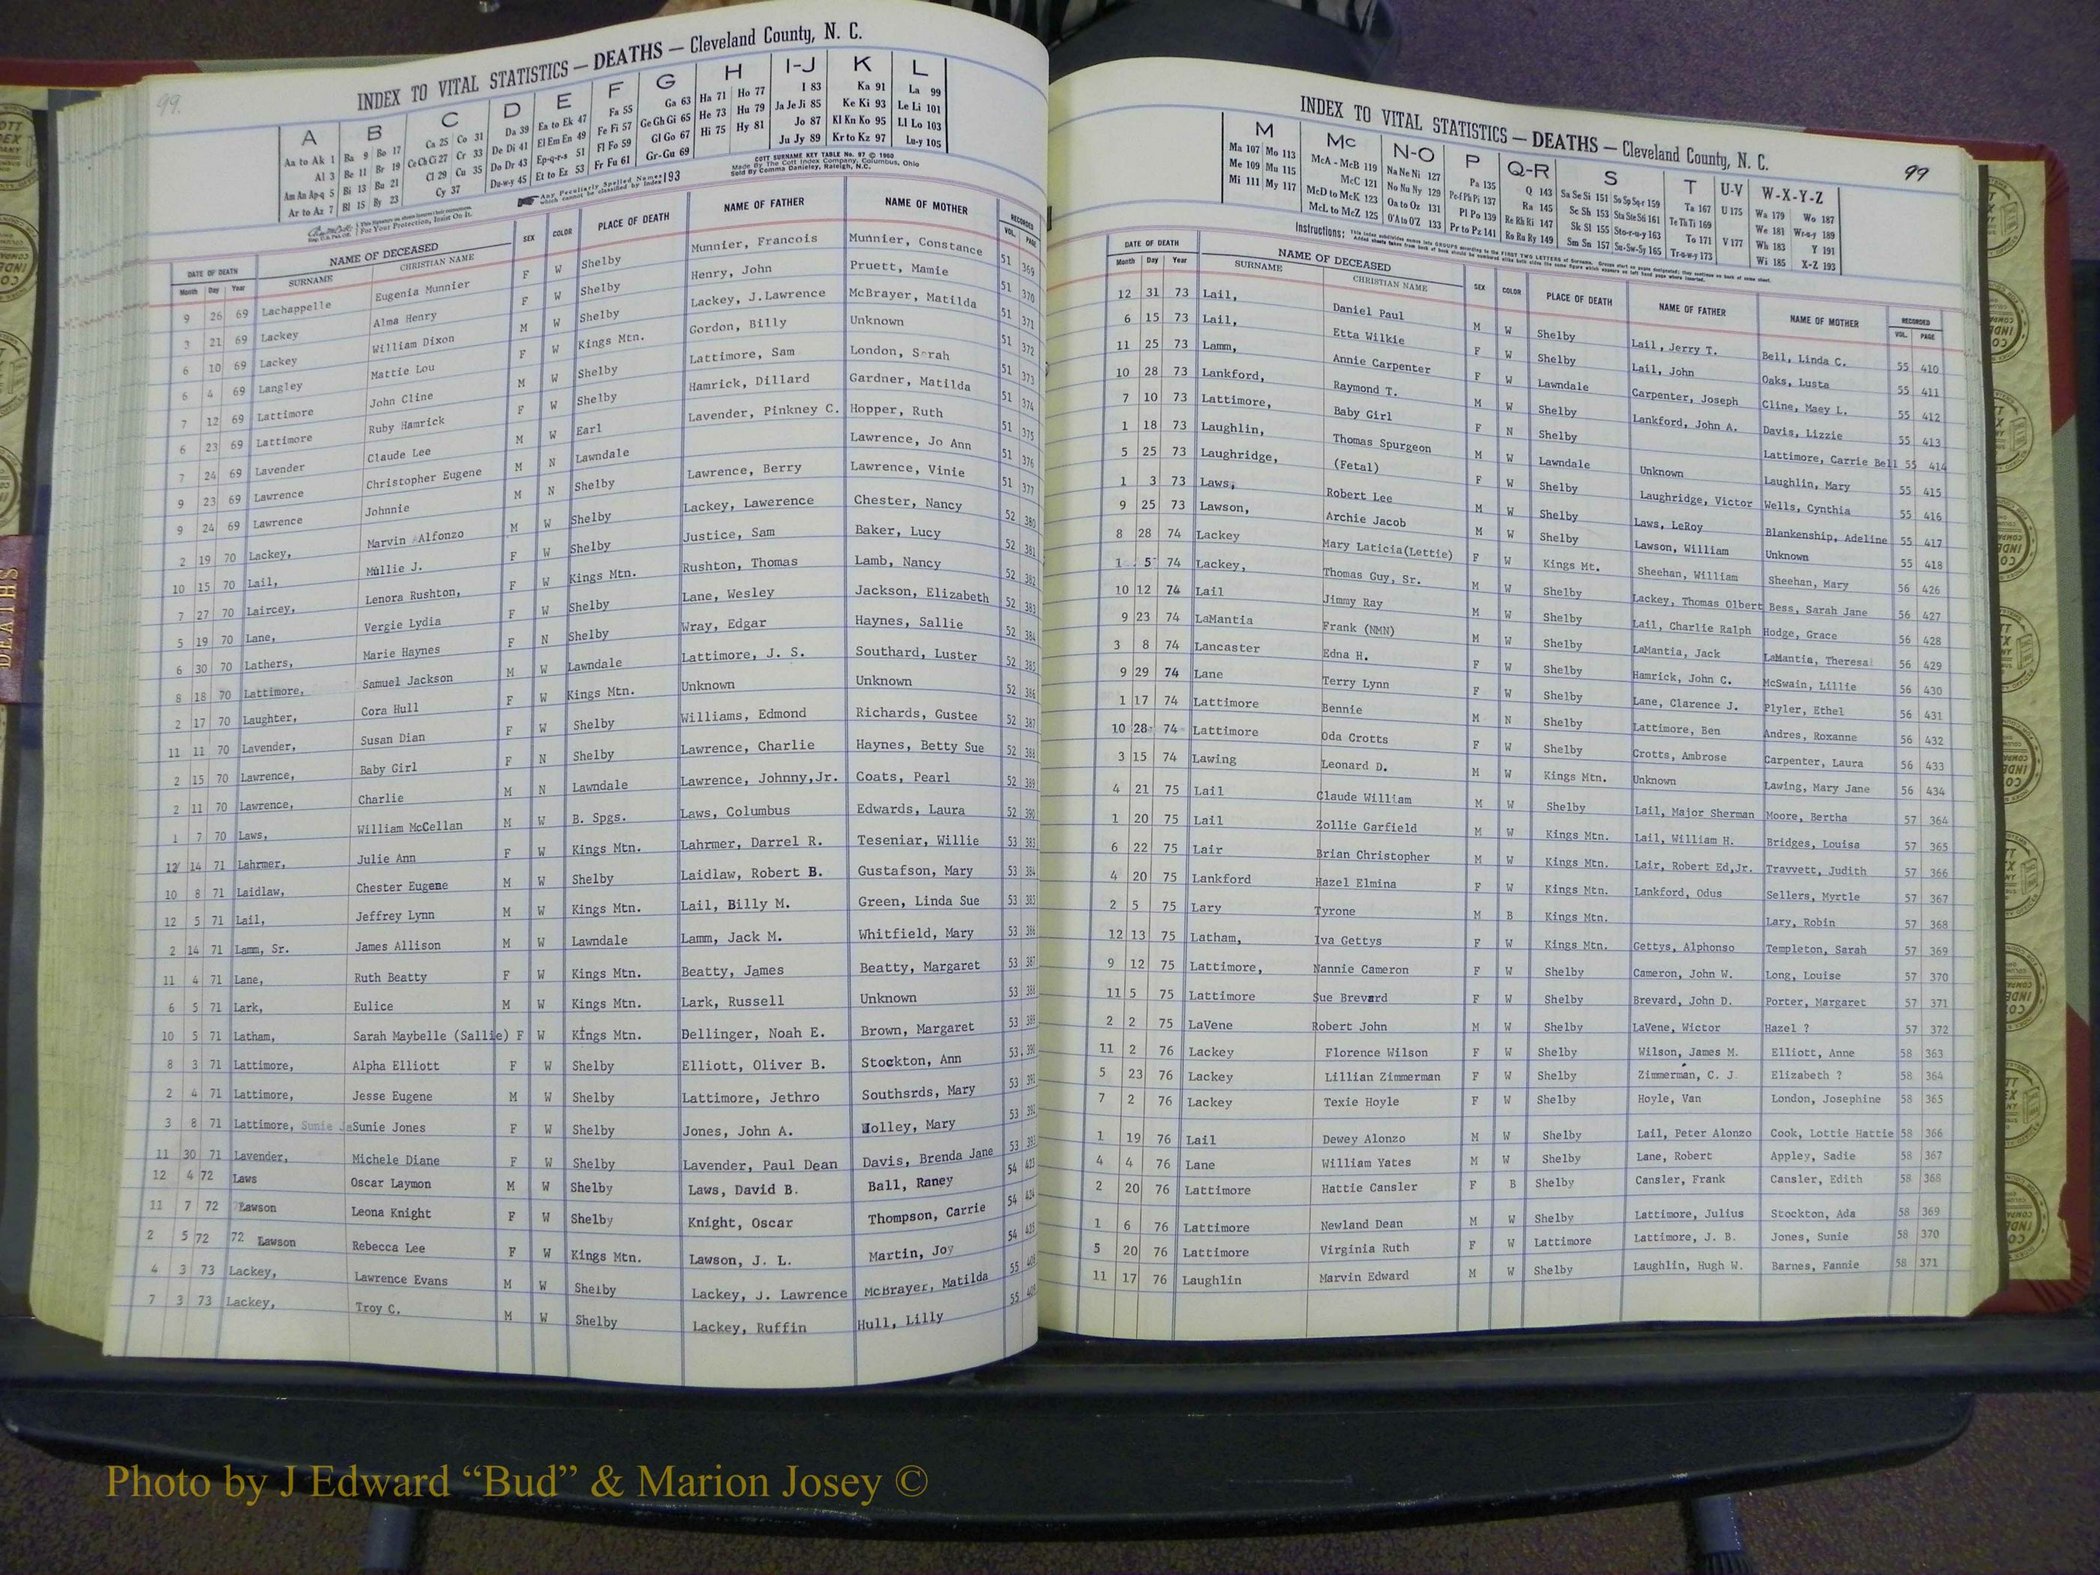 99.
INDEX TO VITAL STATISTICS — DEATHS — Cleveland County, N. C.
A B C D E F G H I-J K L
Aa to Ak 1 Ba 9 Bo 17 Ca 25 Co 31 Da 39 Ea to Ek 47 Fa 55 Ga 63 Ha 71 Ho 77 I 83 Ka 91 La 99
Al 3 Be 11 Br 19 Ce Ch Ci 27 Cr 33 De Di 41 El Em En 49 Fe Fi 57 Ge Gh Gi 65 He 73 Hu 79 Ja Je Ji 85 Ke Ki 93 Le Li 101
Am An Ap-q 5 Bi 13 Bu 21 Cl 29 Cu 35 Do Dr 43 Ep-q-r-s 51 Fl Fo 59 Gl Go 67 Hi 75 Hy 81 Jo 87 Kl Kn Ko 95 Ll Lo 103
Ar to Az 7 Bl 15 By 23 Cy 37 Du-w-y 45 Et to Ez 53 Fr Fu 61 Gr-Gu 69 Ju Jy 89 Kr to Kz 97 Lu-y 105
COTT SURNAME KEY TABLE No. 97 © 1960
Made By The Cott Index Company, Columbus, Ohio
Sold By Comma Danieley, Raleigh, N.C.
Any Peculiarly Spelled Names which cannot be classified by Index 193
For Your Protection, Insist On It.
DATE OF DEATH NAME OF DECEASED SEX COLOR PLACE OF DEATH NAME OF FATHER NAME OF MOTHER RECORDED
Month Day Year SURNAME CHRISTIAN NAME VOL. PAGE
9 26 69 Lachappelle Eugenia Munnier F W Shelby Munnier, Francois Munnier, Constance 51 369
3 21 69 Lackey Alma Henry F W Shelby Henry, John Pruett, Mamie 51 370
6 10 69 Lackey William Dixon M W Shelby Lackey, J.Lawrence McBrayer, Matilda 51 371
6 4 69 Langley Mattie Lou F W Kings Mtn. Gordon, Billy Unknown 51 372
7 12 69 Lattimore John Cline M W Shelby Lattimore, Sam London, Sarah 51 373
6 23 69 Lattimore Ruby Hamrick F W Shelby Hamrick, Dillard Gardner, Matilda 51 374
7 24 69 Lavender Claude Lee M W Earl Lavender, Pinkney C. Hopper, Ruth 51 375
9 23 69 Lawrence Christopher Eugene M N Lawndale Lawrence, Jo Ann 51 376
9 24 69 Lawrence Johnnie M N Shelby Lawrence, Berry Lawrence, Vinie 51 377
2 19 70 Lackey, Marvin Alfonzo M W Shelby Lackey, Lawerence Chester, Nancy 52 380
10 15 70 Lail, Mullie J. F W Shelby Justice, Sam Baker, Lucy 52 381
7 27 70 Laircey, Lenora Rushton, F W Kings Mtn. Rushton, Thomas Lamb, Nancy 52 382
5 19 70 Lane, Vergie Lydia F W Shelby Lane, Wesley Jackson, Elizabeth 52 383
6 30 70 Lathers, Marie Haynes F N Shelby Wray, Edgar Haynes, Sallie 52 384
8 18 70 Lattimore, Samuel Jackson M W Lawndale Lattimore, J. S. Southard, Luster 52 385
2 17 70 Laughter, Cora Hull F W Kings Mtn. Unknown Unknown 52 386
11 11 70 Lavender, Susan Dian F W Shelby Williams, Edmond Richards, Gustee 52 387
2 15 70 Lawrence, Baby Girl F N Shelby Lawrence, Charlie Haynes, Betty Sue 52 388
2 11 70 Lawrence, Charlie M N Lawndale Lawrence, Johnny,Jr. Coats, Pearl 52 389
1 7 70 Laws, William McCellan M W B. Spgs. Laws, Columbus Edwards, Laura 52 390
12 14 71 Lahrmer, Julie Ann F W Kings Mtn. Lahrmer, Darrel R. Teseniar, Willie 53 383
10 8 71 Laidlaw, Chester Eugene M W Shelby Laidlaw, Robert B. Gustafson, Mary 53 384
12 5 71 Lail, Jeffrey Lynn M W Kings Mtn. Lail, Billy M. Green, Linda Sue 53 385
2 14 71 Lamm, Sr. James Allison M W Lawndale Lamm, Jack M. Whitfield, Mary 53 386
11 4 71 Lane, Ruth Beatty F W Kings Mtn. Beatty, James Beatty, Margaret 53 387
6 5 71 Lark, Eulice M W Kings Mtn. Lark, Russell Unknown 53 388
10 5 71 Latham, Sarah Maybelle (Sallie) F W Kings Mtn. Bellinger, Noah E. Brown, Margaret 53 389
8 3 71 Lattimore, Alpha Elliott F W Shelby Elliott, Oliver B. Stockton, Ann 53 390
2 4 71 Lattimore, Jesse Eugene M W Shelby Lattimore, Jethro Southsrds, Mary 53 391
3 8 71 Lattimore, Sunie Ja Sunie Jones F W Shelby Jones, John A. Holley, Mary 53 392
11 30 71 Lavender, Michele Diane F W Shelby Lavender, Paul Dean Davis, Brenda Jane 53 393
12 4 72 Laws Oscar Laymon M W Shelby Laws, David B. Ball, Raney 54 423
11 7 72 Lawson Leona Knight F W Shelby Knight, Oscar Thompson, Carrie 54 424
2 5 72 72 Lawson Rebecca Lee F W Kings Mtn. Lawson, J. L. Martin, Joy 54 425
4 3 73 Lackey, Lawrence Evans M W Shelby Lackey, J. Lawrence McBrayer, Matilda 55 408
7 3 73 Lackey, Troy C. M W Shelby Lackey, Ruffin Hull, Lilly 55 409
INDEX TO VITAL STATISTICS — DEATHS — Cleveland County, N. C.
99
M Mc N-O P Q-R S T U-V W-X-Y-Z
Ma 107 Mo 113 McA - McB 119 Na Ne Ni 127 Pa 135 Q 143 Sa Se Si 151 So Sp Sq-r 159 Ta 167 U 175 Wa 179 Wo 187
Me 109 Mu 115 McC 121 No Nu Ny 129 Pe-f Ph Pi 137 Ra 145 Sc Sh 153 Sta Ste Sti 161 Te Th Ti 169 We 181 Wr-u-y 189
Mi 111 My 117 McD to McK 123 Oa to Oz 131 Pl Po 139 Re Rh Ri 147 Sk Sl 155 Sto-r-u-y 163 To 171 V 177 Wh 183 Y 191
McL to McZ 125 O'A to O'Z 133 Pr to Pz 141 Ro Ru Ry 149 Sm Sn 157 Su-Sw-Sy 165 Tr-u-w-y 173 Wi 185 X-Z 193
Instructions:
DATE OF DEATH NAME OF DECEASED SEX COLOR PLACE OF DEATH NAME OF FATHER NAME OF MOTHER RECORDED
Month Day Year SURNAME CHRISTIAN NAME VOL. PAGE
12 31 73 Lail, Daniel Paul M W Shelby Lail, Jerry T. Bell, Linda C. 55 410
6 15 73 Lail, Etta Wilkie F W Shelby Lail, John Oaks, Lusta 55 411
11 25 73 Lamm, Annie Carpenter F W Lawndale Carpenter, Joseph Cline, Maey L. 55 412
10 28 73 Lankford, Raymond T. M W Shelby Lankford, John A. Davis, Lizzie 55 413
7 10 73 Lattimore, Baby Girl F N Shelby Lattimore, Carrie Bell 55 414
1 18 73 Laughlin, Thomas Spurgeon M W Lawndale Unknown Laughlin, Mary 55 415
5 25 73 Laughridge, (Fetal) F W Shelby Laughridge, Victor Wells, Cynthia 55 416
1 3 73 Laws, Robert Lee M W Shelby Laws, LeRoy Blankenship, Adeline 55 417
9 25 73 Lawson, Archie Jacob M W Shelby Lawson, William Unknown 55 418
8 28 74 Lackey Mary Laticia(Lettie) F W Kings Mt. Sheehan, William Sheehan, Mary 56 426
1 5 74 Lackey, Thomas Guy, Sr. M W Shelby Lackey, Thomas Olbert Bess, Sarah Jane 56 427
10 12 74 Lail Jimmy Ray M W Shelby Lail, Charlie Ralph Hodge, Grace 56 428
9 23 74 LaMantia Frank (NMN) M W Shelby LaMantia, Jack LaMantia, Theresa 56 429
3 8 74 Lancaster Edna H. F W Shelby Hamrick, John C. McSwain, Lillie 56 430
9 29 74 Lane Terry Lynn F W Shelby Lane, Clarence J. Plyler, Ethel 56 431
1 17 74 Lattimore Bennie M N Shelby Lattimore, Ben Andres, Roxanne 56 432
10 28 74 Lattimore Oda Crotts F W Shelby Crotts, Ambrose Carpenter, Laura 56 433
3 15 74 Lawing Leonard D. M W Kings Mtn. Unknown Lawing, Mary Jane 56 434
4 21 75 Lail Claude William M W Shelby Lail, Major Sherman Moore, Bertha 57 364
1 20 75 Lail Zollie Garfield M W Kings Mtn. Lail, William H. Bridges, Louisa 57 365
6 22 75 Lair Brian Christopher M W Kings Mtn. Lair, Robert Ed,Jr. Travvett, Judith 57 366
4 20 75 Lankford Hazel Elmina F W Kings Mtn. Lankford, Odus Sellers, Myrtle 57 367
2 5 75 Lary Tyrone M B Kings Mtn. Lary, Robin 57 368
12 13 75 Latham, Iva Gettys F W Kings Mtn. Gettys, Alphonso Templeton, Sarah 57 369
9 12 75 Lattimore, Nannie Cameron F W Shelby Cameron, John W. Long, Louise 57 370
11 5 75 Lattimore Sue Brevard F W Shelby Brevard, John D. Porter, Margaret 57 371
2 2 75 LaVene Robert John M W Shelby LaVene, Wictor Hazel ? 57 372
11 2 76 Lackey Florence Wilson F W Shelby Wilson, James M. Elliott, Anne 58 363
5 23 76 Lackey Lillian Zimmerman F W Shelby Zimmerman, C. J. Elizabeth ? 58 364
7 2 76 Lackey Texie Hoyle F W Shelby Hoyle, Van London, Josephine 58 365
1 19 76 Lail Dewey Alonzo M W Shelby Lail, Peter Alonzo Cook, Lottie Hattie 58 366
4 4 76 Lane William Yates M W Shelby Lane, Robert Appley, Sadie 58 367
2 20 76 Lattimore Hattie Cansler F B Shelby Cansler, Frank Cansler, Edith 58 368
1 6 76 Lattimore Newland Dean M W Shelby Lattimore, Julius Stockton, Ada 58 369
5 20 76 Lattimore Virginia Ruth F W Lattimore Lattimore, J. B. Jones, Sunie 58 370
11 17 76 Laughlin Marvin Edward M W Shelby Laughlin, Hugh W. Barnes, Fannie 58 371
DEATHS
Photo by J Edward “Bud” & Marion Josey ©